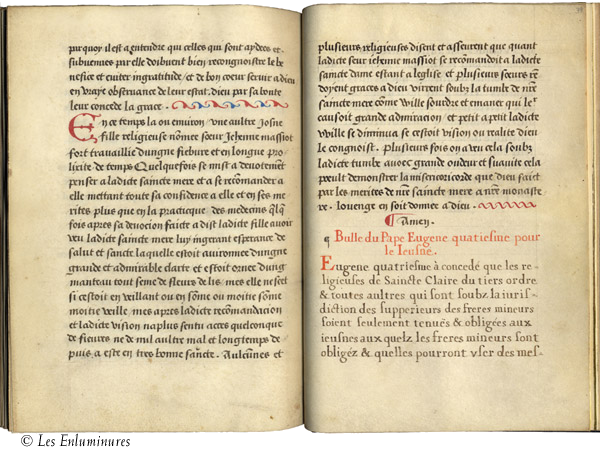 parquoy il est a entendre qui celles qui sont aydees et
subuenues par elle doibuent bien recongnoistre le be
nefice et euiter ingratitude et de bon coeur seruir a dieu
en vraye obseruance de leur estat. dieu par sa bonte
leur concede la grace.
En ce temps la ou enuiron vne aultre Josne
fille religieuse nomee soeur Jehenne massiot
fort trauaillie dungne fiebure et en longue pro
lixite de temps Quelquefois se mist a deuotement
penser a ladicte saincte mere et a se recomander a
elle mettant toute sa confidence a elle et en ses me
rites plus que en la practicque des medecins qlq
fois apres sa deuocion faicte a dist ladicte fille auoir
veu ladicte saincte mere luy ingerant esperance de
salut et sancte laquelle estoit auironnee dungne
grande et admirable clarte et estoit ornee dung
manteau tout seme de fleurs de lis. mes elle ne scet
si cestoit en veillant ou en some ou moitie some
moitie veille. mes apres ladicte recomandacion
et ladicte vision na plus sentu acces quelconque
de fieures ne de nul aultre mal et longtemps de
puis a este en tres bonne sancte. Aulcunes et
plusieurs religieuses disent et asseurent que quant
ladicte seur iehenne massiot se recomandoit a ladicte
saincte dame estant a leglise et plusieurs soeurs
doyent graces a dieu virrent soubz la tumbe de nre
saincte mere come wille sourdre et emaner qui le
causoit grande admiracion et petit a petit ladicte
wille se diminua se cestoit vision ou realite dieu
le congnoist. Plusieurs fois on a veu cela soubz
ladicte tumbe auoec grande oudeur et suauite cela
preult demonstrer la misericorde que dieu faict
par les merites de nre saincte mere a nre monaste
re. louenge en soit donnee a dieu.
Amen.
Bulle du Pape Eugene quatiesme pour
le Ieusne.
Eugene quatriesme à concedé que les re-
ligieuses de Saincte Claire du tiers ordre
& toutes aultres qui sont soubz la iuris-
diction des supperieurs des freres mineurs
soient seulement tenuës & obligées aux
ieusnes aux quelz les freres mineurs sont
obligéz & quelles pourront vser des mes-
© Les Enluminures